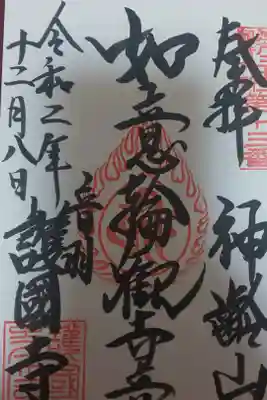 奉拝 神齢山
如意輪観世音
音羽 護國寺
令和二年
十二月八日